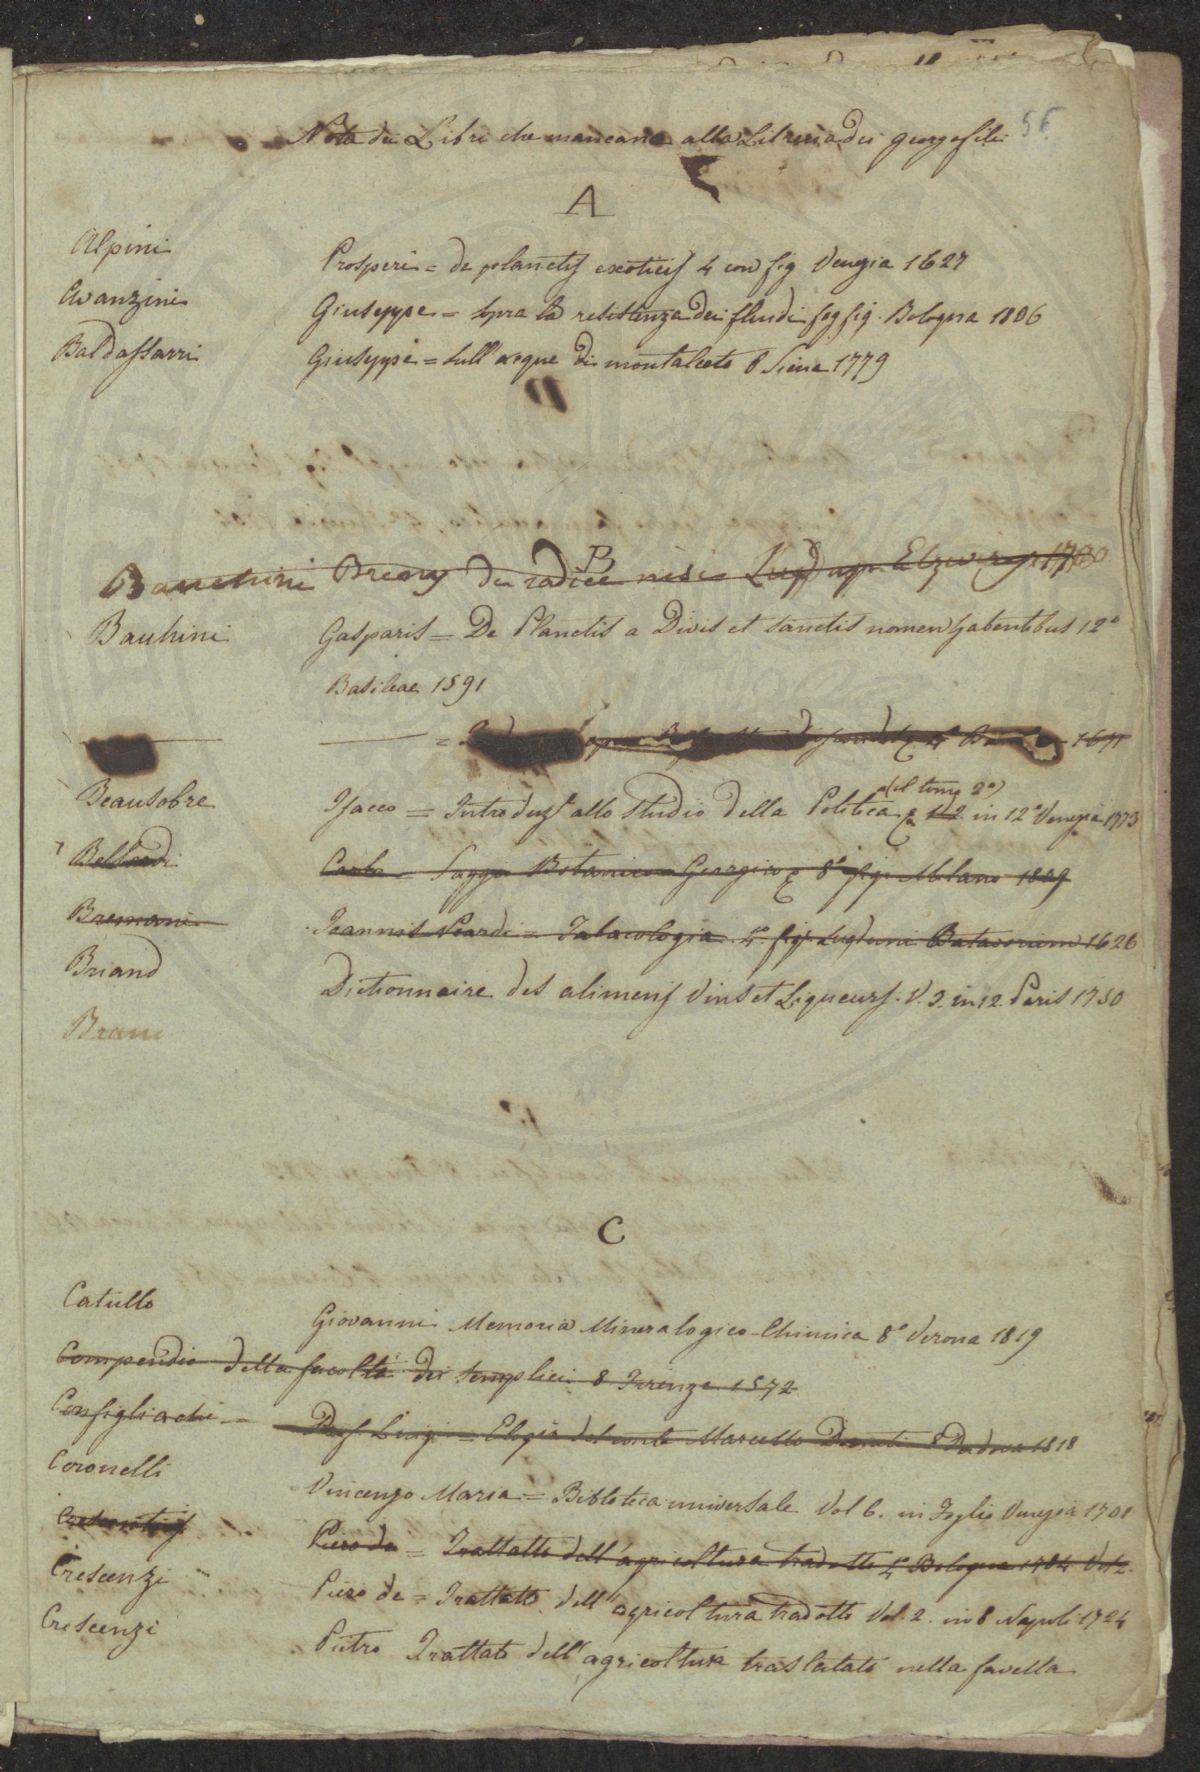 Nota dei Libri che mancano alla Libreria dei georgofili 56
A
Alpini Prosperi = de planctis exoticis 4 con fig Venezia 1627
Avanzini Giuseppe = Sopra la resistenza dei fluidi fog fig. Bologna 1806
Baldassarri Giuseppe = sull'acque di montalceto 8 Siena 1779
B
Bauchini De radice 1700
Bauhini Gasparis = De Planctis a Divis et sanctis nomen habentibus 12º
Basileae 1591
= 4º 1671
(il tomo 2º)
Beausobre Isacco = Introduzº allo studio della Politica in 12º Venezia 1773
Bellardi Carlo = Saggio Botanico Georgico 8º fig. Milano 1809
Bremani Joannis = 4º fig. Lugduni Batavorum 1626
Briand Dictionnaire des alimens vins et Liqueurs. V. 3. in 12. Paris 1750
C
Catullo Giovanni Memoria Mineralogico-Chimica 8º Verona 1819
Compendio della facoltà dei semplici 8 Firenze 1572
Configliachi = Luigi = Elogio del conte Marcello 8º Padova 1818
Coronelli Vincenzo Maria = Biblioteca universale Vol 6. in Foglio Venezia 1701
Piero de = Trattato dell'agricoltura tradotto 4º Bologna 1784 Vol 2.
Crescenzi Piero de = Trattato dell'agricoltura tradotto Vol. 2. in 8 Napoli 1724
Crescenzi Pietro Trattato dell'agricoltura traslatato nella favella